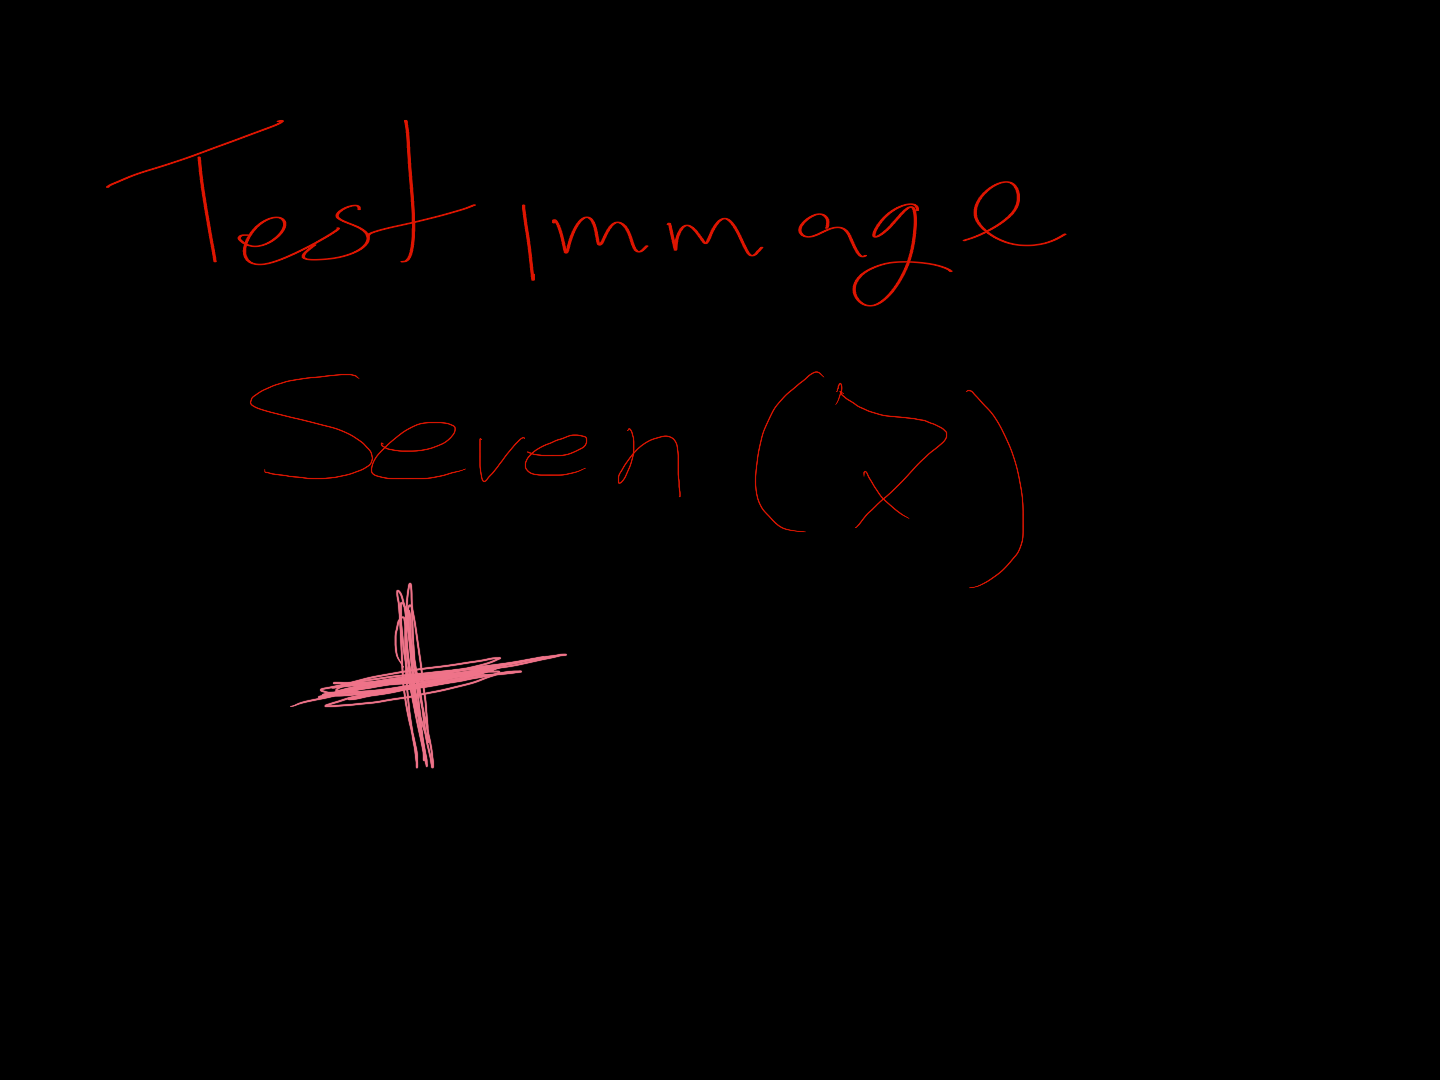 Test immage
Seven (7)
+